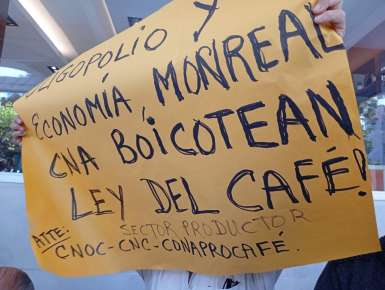 OLIGOPOLIO Y
ECONOMÍA, MONREAL
CNA BOICOTEAN
LEY DEL CAFÉ!
SECTOR PRODUCTOR
ATTE:
CNOC-CNC-CONAPROCAFÉ.